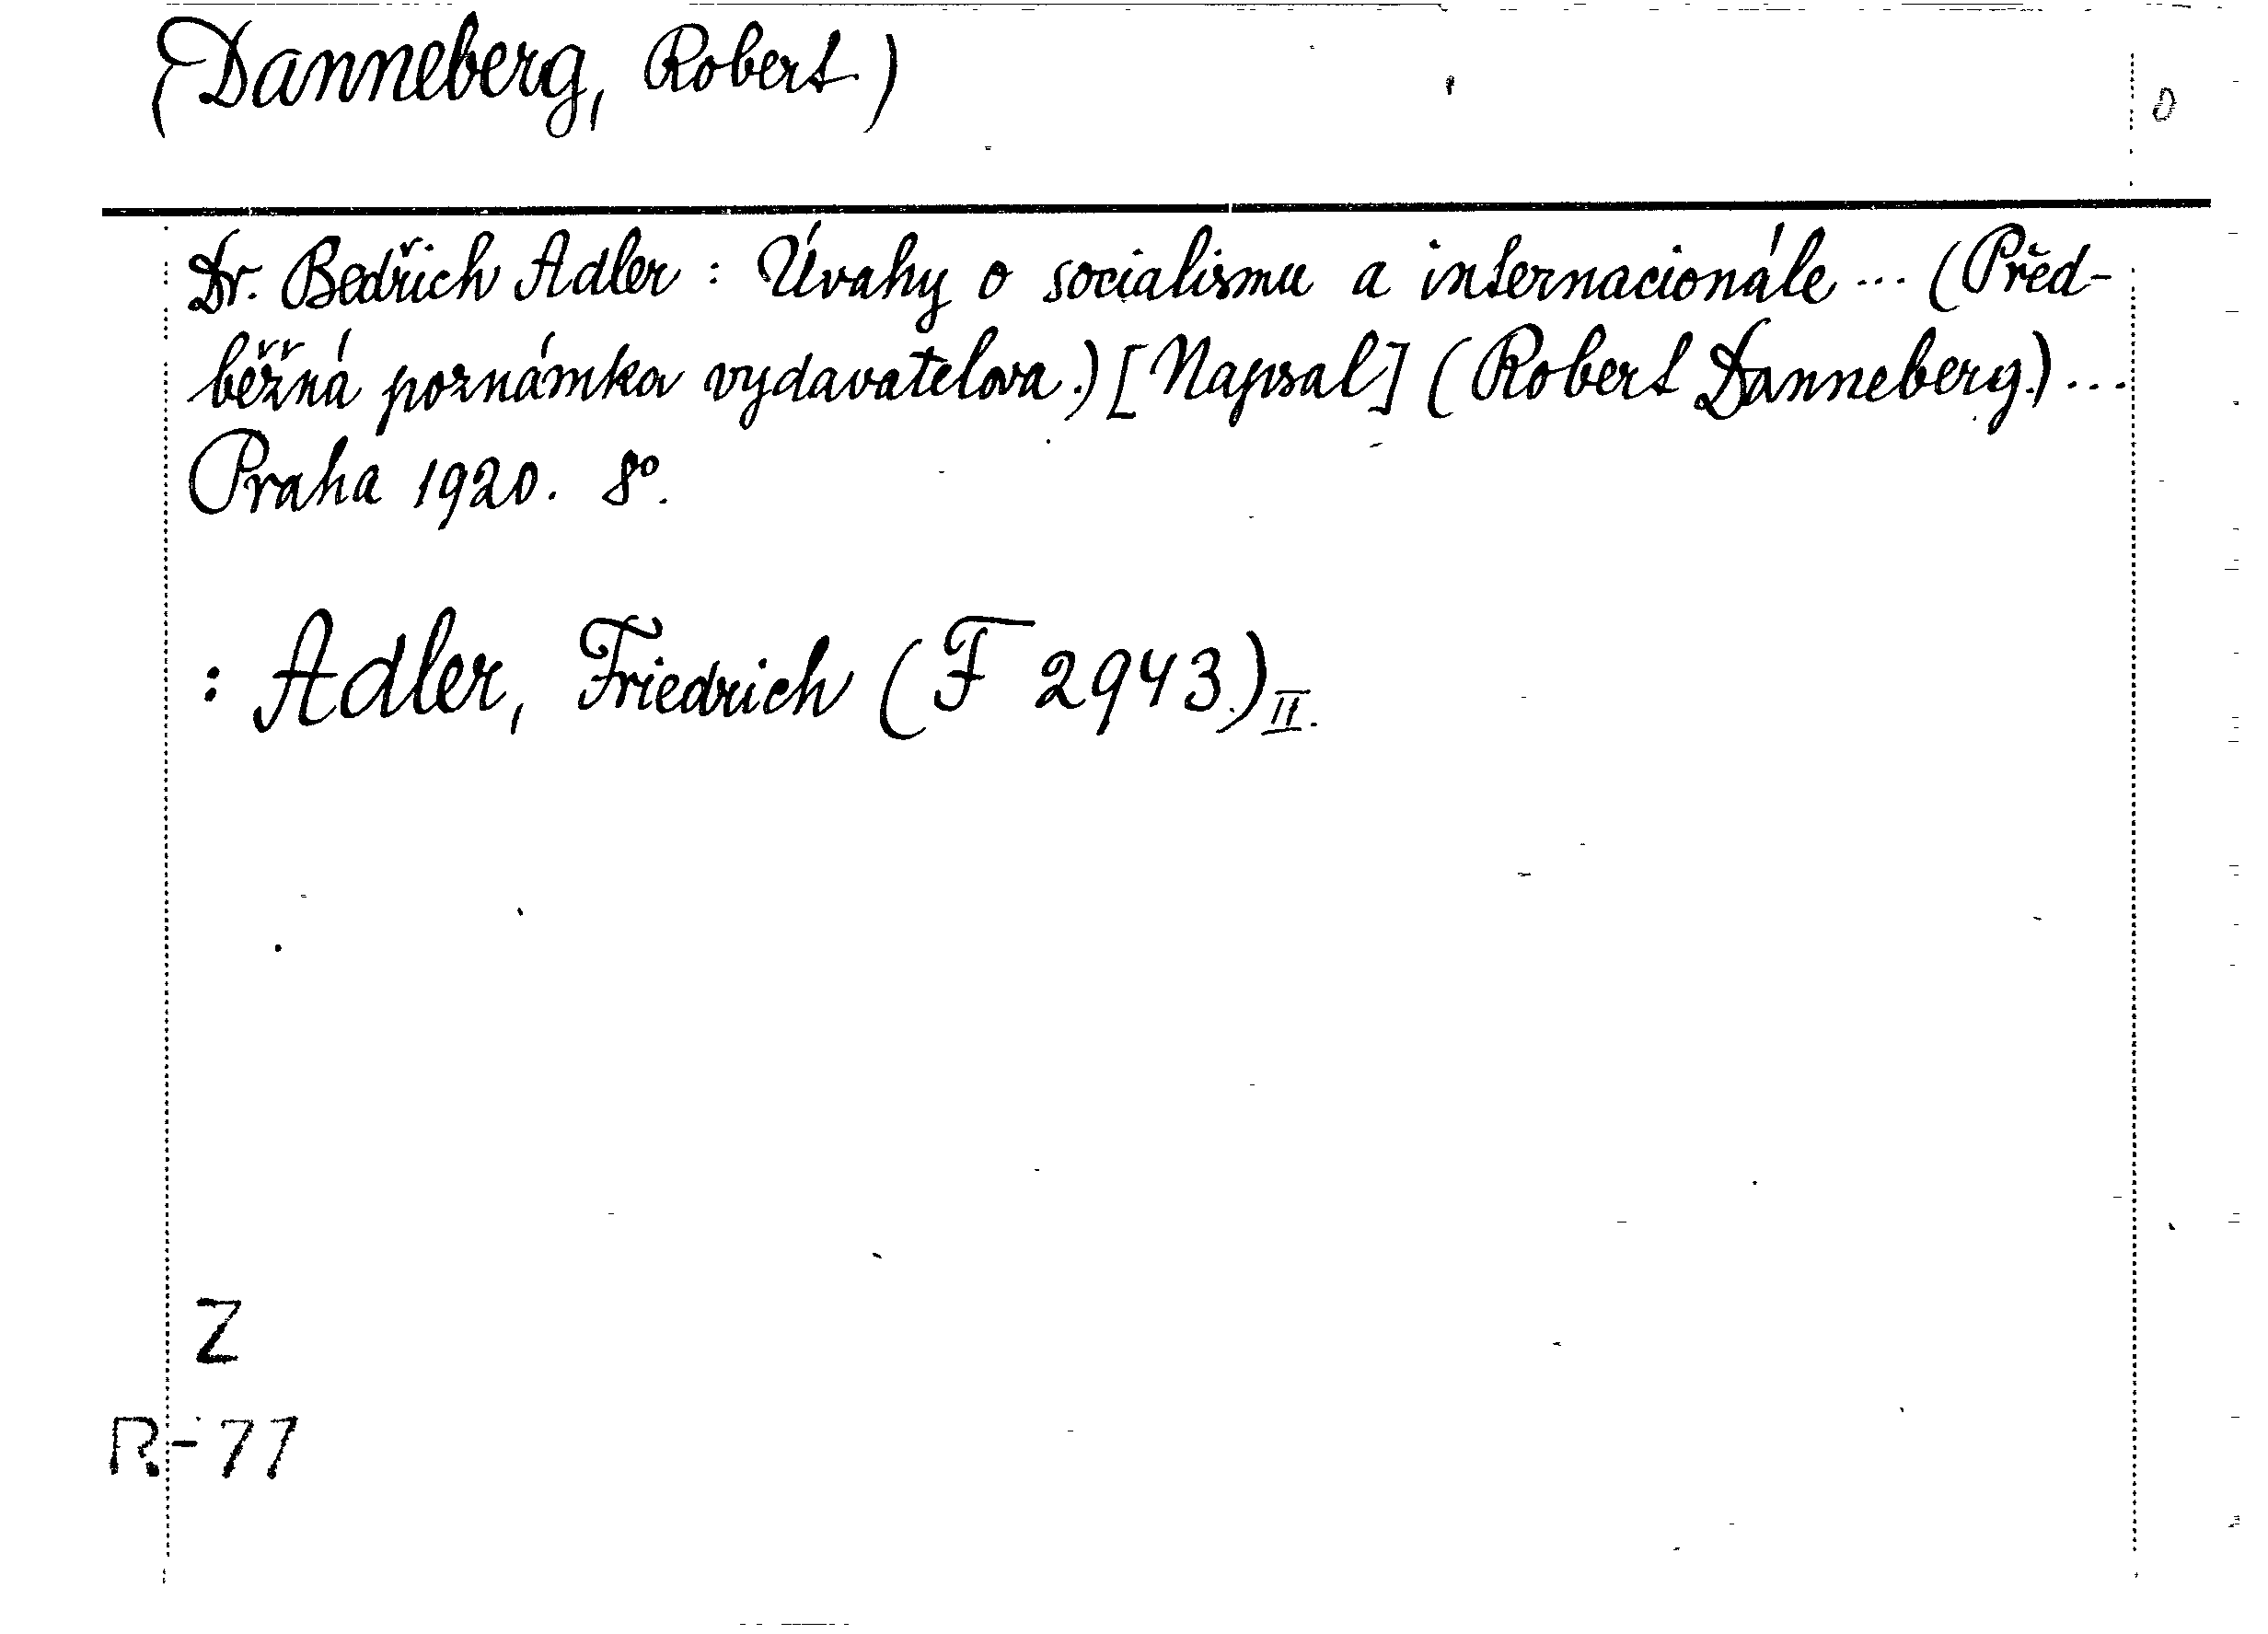 (Danneberg, Robert)
0
Dr. Bedřich Adler : Úvahy o socialismu a internacionále ... (Před-
běžná poznámka vydavatelova.) [Napsal] (Robert Danneberg.) ...
Praha 1920. 8°.
: Adler, Friedrich (F 2943.) II.
Z
R-77